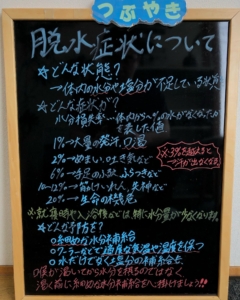 つぶやき
脱水症状について
☆どんな状態?
→体内の水分や塩分が不足している状況
☆どんな症状が?
水分損失率…体内からの水がなくなったかを表した値
1%→大量の発汗、
2%→めまい、吐き気など
6%→手足の ふらつきなど
10~12%→筋けいれん、失神など
20%→生命の危機
※3%を超えると汗が出なくなる
※就寝時や入浴後などは特に水分量が少なくなります。
☆どんな予防を?
○細めな水分補給
○クーラーなどで適度な室温や湿度を保つ
○水だけでなく塩分の補給を
○喉が渇いてから水分を摂るのではなく
渇く前に細めな水分補給を心掛けましょう!!